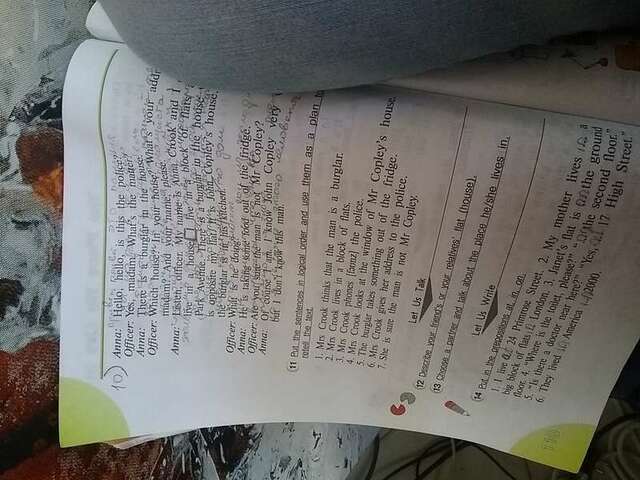 10)
Anna: Hello, hello, is this the police?
Officer: Yes, madam. What's the matter?
Anna: There is a burglar in the house.
Officer: Which house? In your house? What's your
madam? And your name, please.
Anna: Listen, officer. My name is Anna Crook and I
live in a house live in a block of flats
Park Avenue. There is a burglar in the house
is opposite my flat. It is John Copley's house.
the burglar is in his kitchen.
Officer: What is he doing?
Anna: He is taking some food out of the fridge.
Officer: Are you sure the man is not Mr Copley?
Anna: Of course I am. I know John Copley very
but I don't know this man.
11 Put the sentences in logical order and use them as a plan to
retell the text.
1. Mrs Crook thinks that the man is a burglar.
2. Mrs Crook lives in a block of flats.
3. Mrs Crook phones [fəʊnz] the police.
4. Mrs Crook looks at the window of Mr Copley's house.
5. The burglar takes something out of the fridge.
6. Mrs Crook gives her address to the police.
7. She is sure the man is not Mr Copley.
Let Us Talk
12 Describe your friend's or your relatives' flat (house).
13 Choose a partner and talk about the place he/she lives in.
Let Us Write
14 Put in the prepositions at, in, on.
1. I live at 24 Primrose Street. 2. My mother lives in a
big block of flats in London. 3. Janet's flat is on the ground
floor. 4. "Where is the toilet, please?" "On the second floor."
5. "Is there a doctor near here?" "Yes, at 17 High Street."
6. They lived in America in 2000.